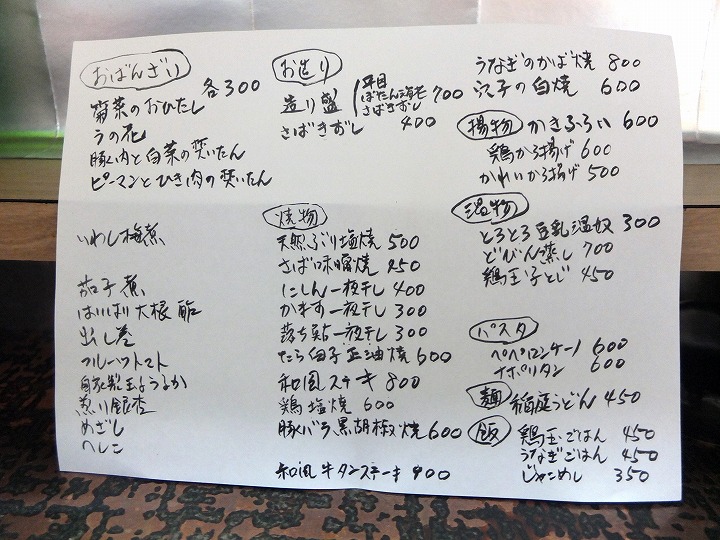 おばんざい 各300
菊菜のおひたし
うの花
豚肉と白菜の煮いたん
ピーマンとひき肉の煮いたん
いわし梅煮
茄子煮
はりはり大根 酢
出し巻
フルーツトマト
自家製生うるか
煎り銀杏
めざし
へしこ
お造り
造り盛 平目 ぼたん海老 さばきずし 700
さばきずし 400
焼物
天然ぶり塩焼 500
さば味噌焼 250
にしん一夜干し 400
かます一夜干し 300
落ち鮎一夜干し 300
たら白子正油焼 600
和風ステーキ 800
鶏塩焼 600
豚バラ黒胡椒焼 600
和風牛タンステーキ 900
うなぎのかば焼 800
穴子の白焼 600
揚物 かきふらい 600
鶏から揚げ 600
かれいから揚げ 500
温物
とろとろ豆乳温奴 300
どびん蒸し 700
鶏玉子とじ 450
パスタ
ペペロンチーノ 600
ナポリタン 600
麺 稲庭うどん 450
飯 鶏玉ごはん 450
うなぎごはん 450
じゃこめし 350